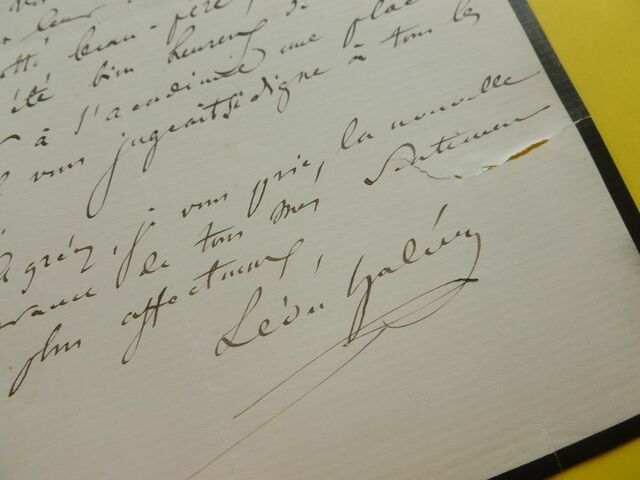 beau-père,
été bien heureux de
à l'académie une place
vous jugeait si digne à tous les
agréez, je vous prie, la nouvelle
de tous mes sentimens
plus affectueux,
Léon Halévy